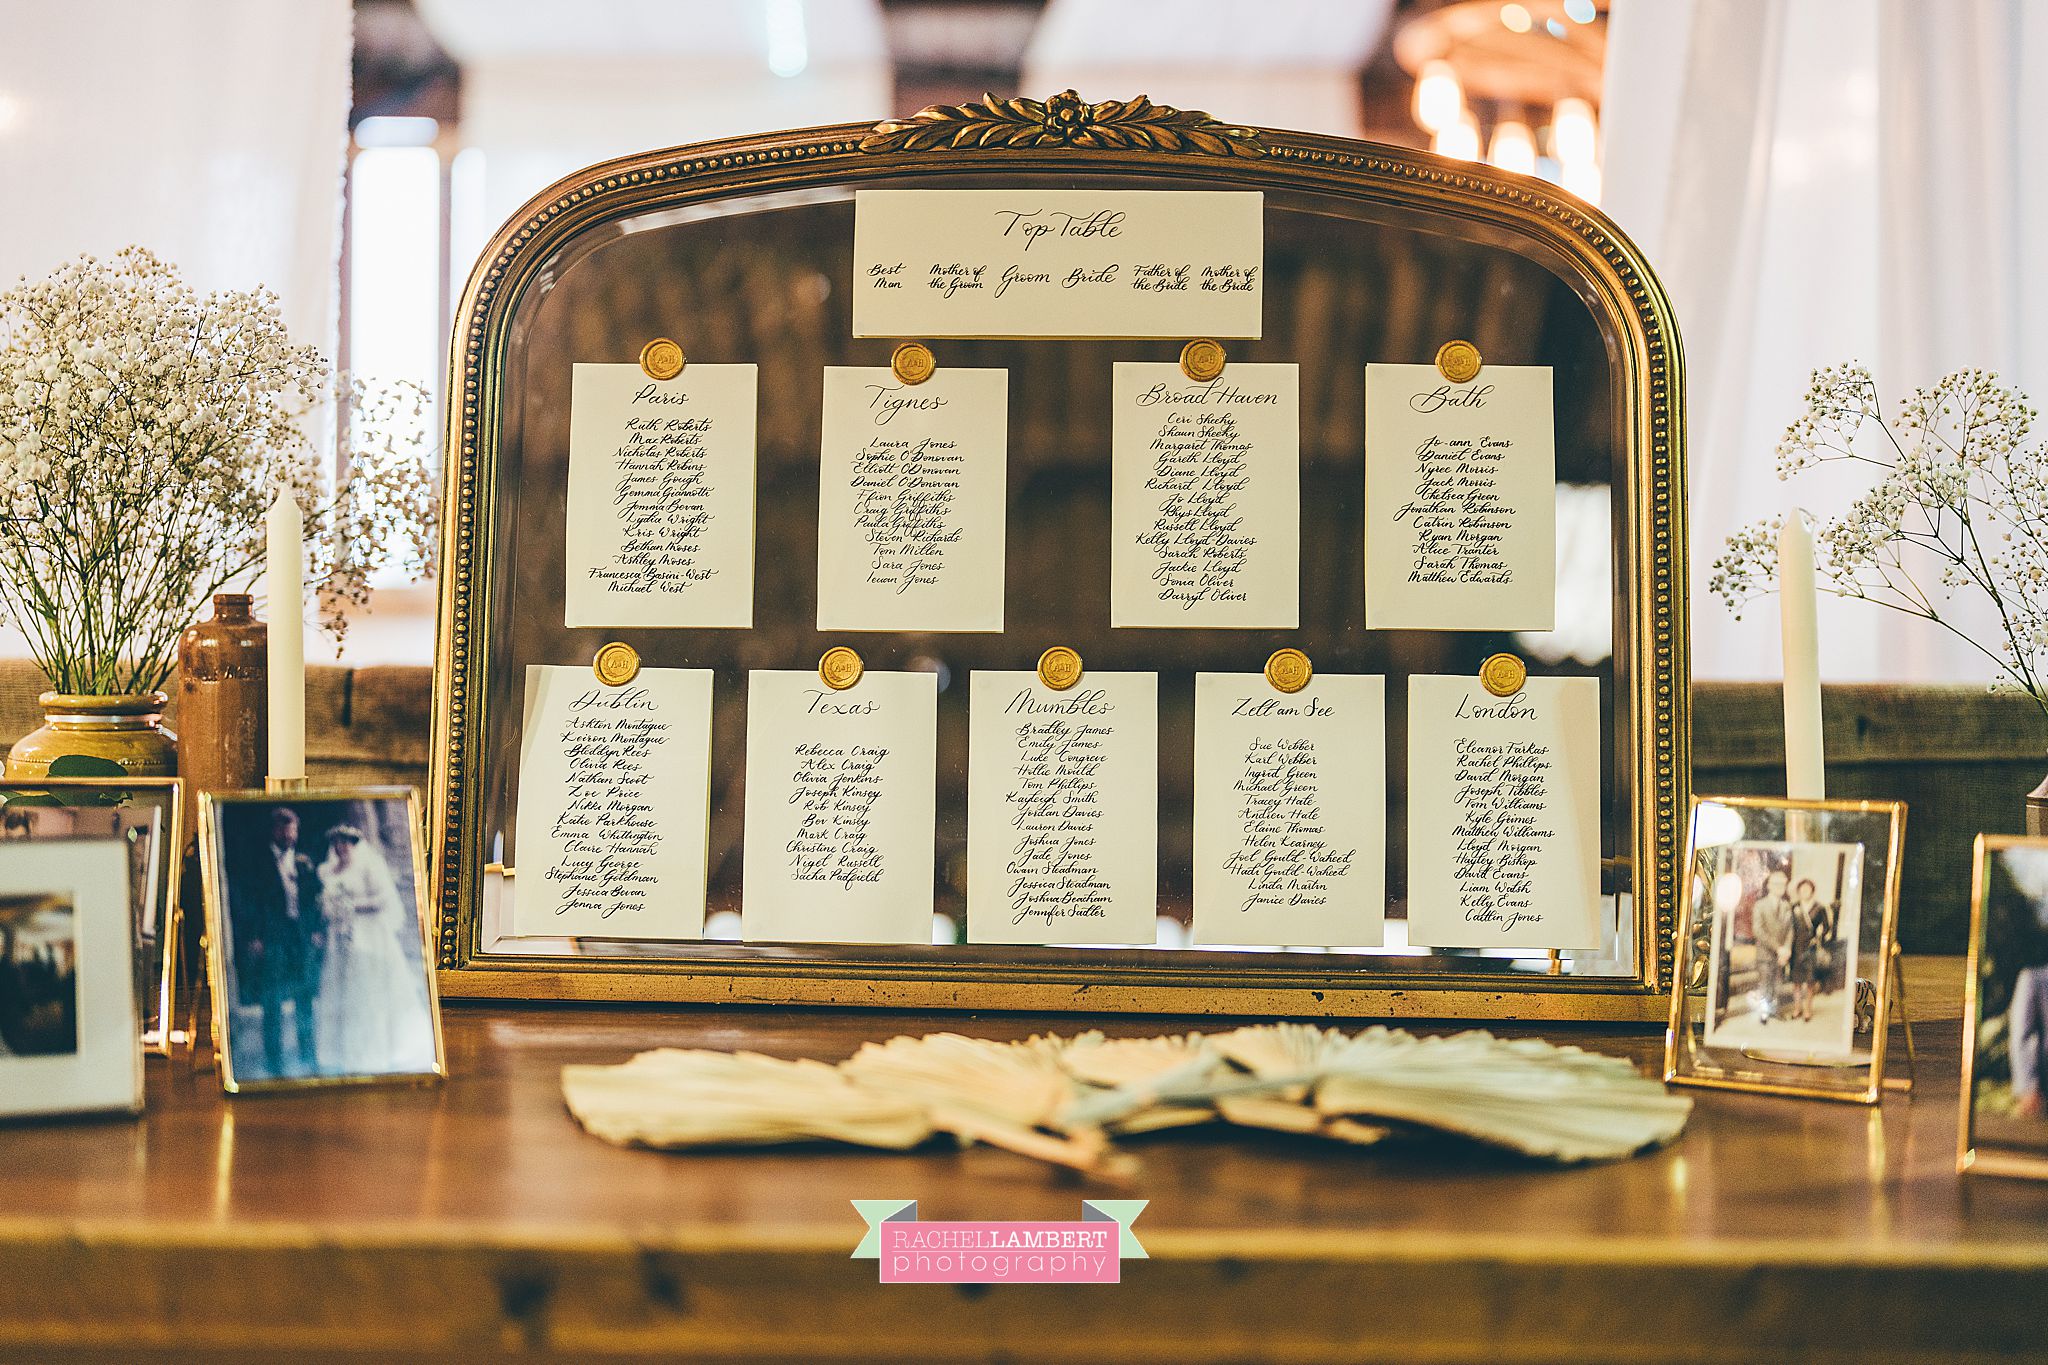 Top Table
Best Man
Mother of the Groom
Groom
Bride
Father of the Bride
Mother of the Bride
Paris
Ruth Roberts
Max Roberts
Nicholas Roberts
Hannah Robins
James Gough
Gemma Giannotti
Jomma Bevan
Lydia Wright
Kris Wright
Bethan Moses
Ashley Moses
Francesca Basini-West
Michael West
Tignes
Laura Jones
Sophie O'Donovan
Elliott O'Donovan
Daniel O'Donovan
Ffion Griffiths
Craig Griffiths
Paula Griffiths
Steven Richards
Tom Millen
Sara Jones
Ieuan Jones
Broad Haven
Ceri Sheehy
Shaun Sheehy
Margaret Thomas
Gareth Lloyd
Diane Lloyd
Richard Lloyd
Jo Lloyd
Rhys Lloyd
Russell Lloyd
Kelly Lloyd-Davies
Sarah Roberts
Jackie Lloyd
Sonia Oliver
Darryl Oliver
Bath
Jo-ann Evans
Daniel Evans
Nyree Morris
Jack Morris
Chelsea Green
Jonathan Robinson
Catrin Robinson
Ryan Morgan
Alice Tranter
Sarah Thomas
Matthew Edwards
Dublin
Ashton Montague
Keiron Montague
Bleddyn Rees
Olivia Rees
Nathan Scott
Zoe Price
Nikki Morgan
Katie Parkhouse
Emma Whittington
Claire Hannah
Lucy George
Stephanie Goldman
Jessica Bevan
Jenna Jones
Texas
Rebecca Craig
Alex Craig
Olivia Jenkins
Joseph Kinsey
Rob Kinsey
Bev Kinsey
Mark Craig
Christine Craig
Nigel Russell
Sacha Padfield
Mumbles
Bradley James
Emily James
Luke Congreve
Hollie Mould
Tom Phillips
Kayleigh Smith
Jordan Davies
Lauren Davies
Joshua Jones
Jade Jones
Owain Steadman
Jessica Steadman
Joshua Beacham
Jennifer Sadler
Zell am See
Sue Webber
Karl Webber
Ingrid Green
Michael Green
Tracey Hale
Andrew Hale
Elaine Thomas
Helen Kearney
Joel Gould-Waheed
Hadi Gould-Waheed
Linda Martin
Janice Davies
London
Eleanor Farkas
Rachel Phillips
David Morgan
Joseph Tibbles
Tom Williams
Kyle Grimes
Matthew Williams
Lloyd Morgan
Hayley Bishop
David Evans
Liam Walsh
Kelly Evans
Caitlin Jones
RACHELLAMBERT
photography